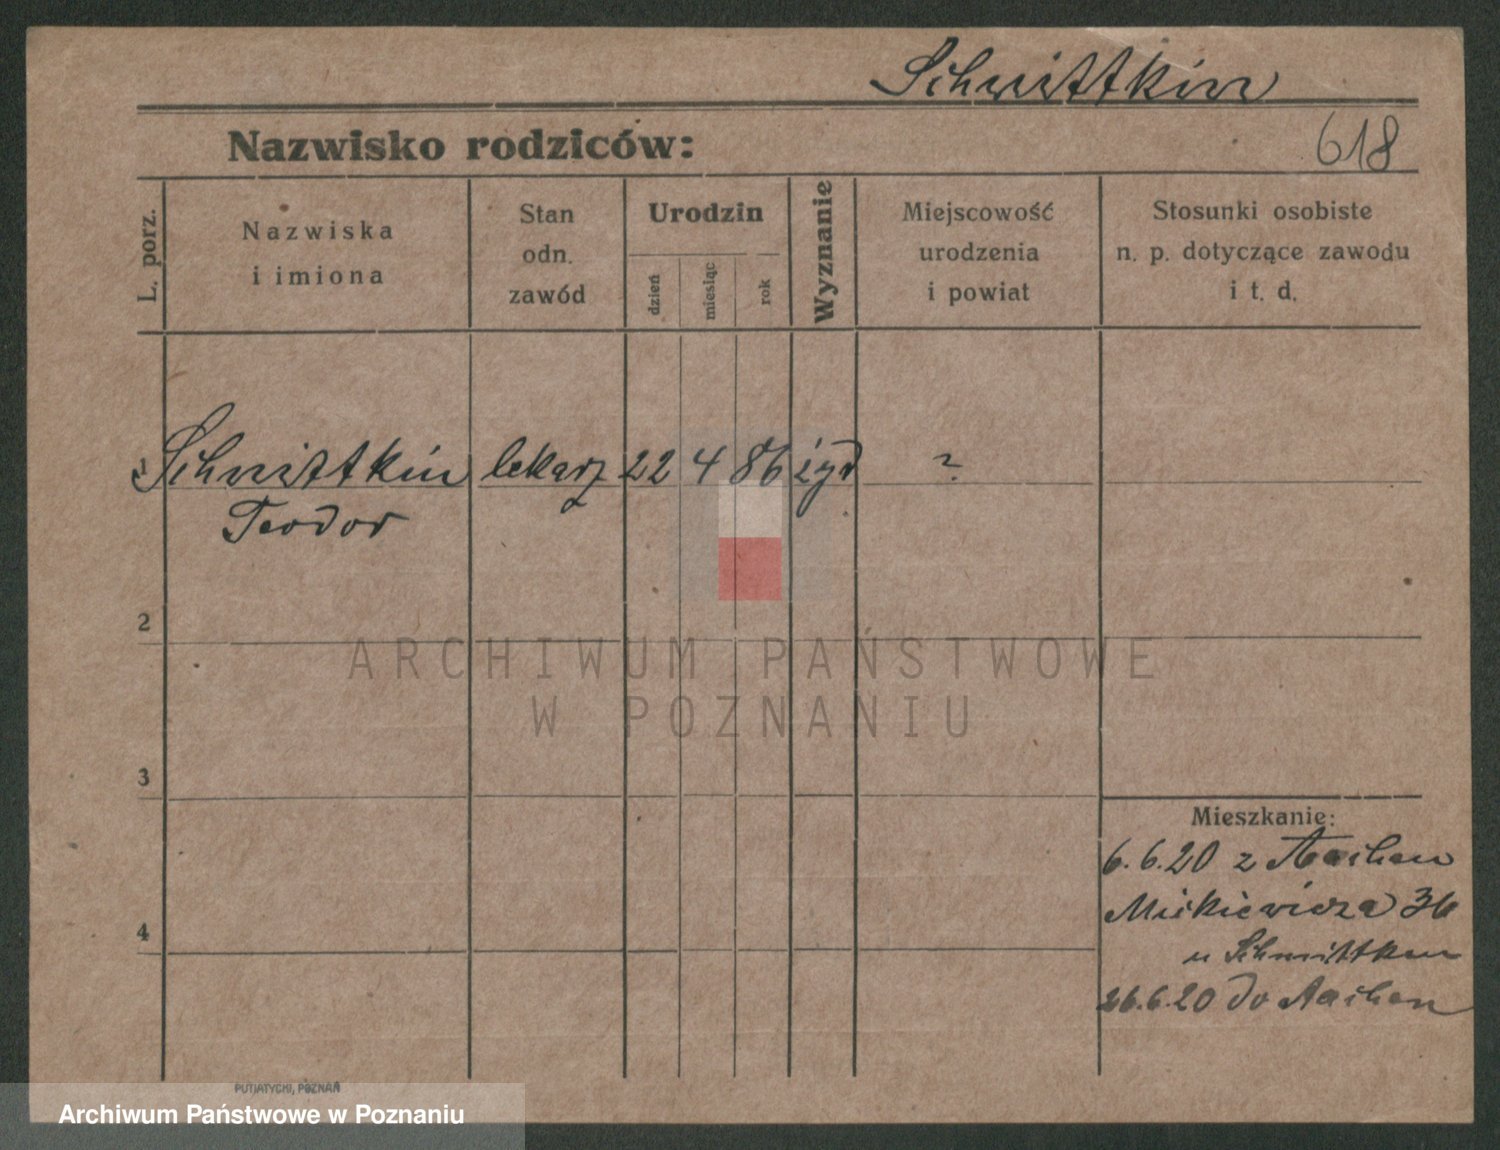 Schmittkin
Nazwisko rodziców:
618
L. porz.
Nazwiska
i imiona
Stan
odn.
zawód
Urodzin
dzień
miesiąc
rok
Wyznanie
Miejscowość
urodzenia
i powiat
Stosunki osobiste
n. p. dotyczące zawodu
i t. d.
1 Schmittkin lekarz 22 4 86 żyd ?
Teodor
2
3
4
Mieszkanie:
6.6.20 z Aachen
Mickiewicza 36
u Schmittkin
26.6.20 do Aachen
ARCHIWUM PAŃSTWOWE
W POZNANIU
PUTIATYCKI, POZNAŃ
Archiwum Państwowe w Poznaniu